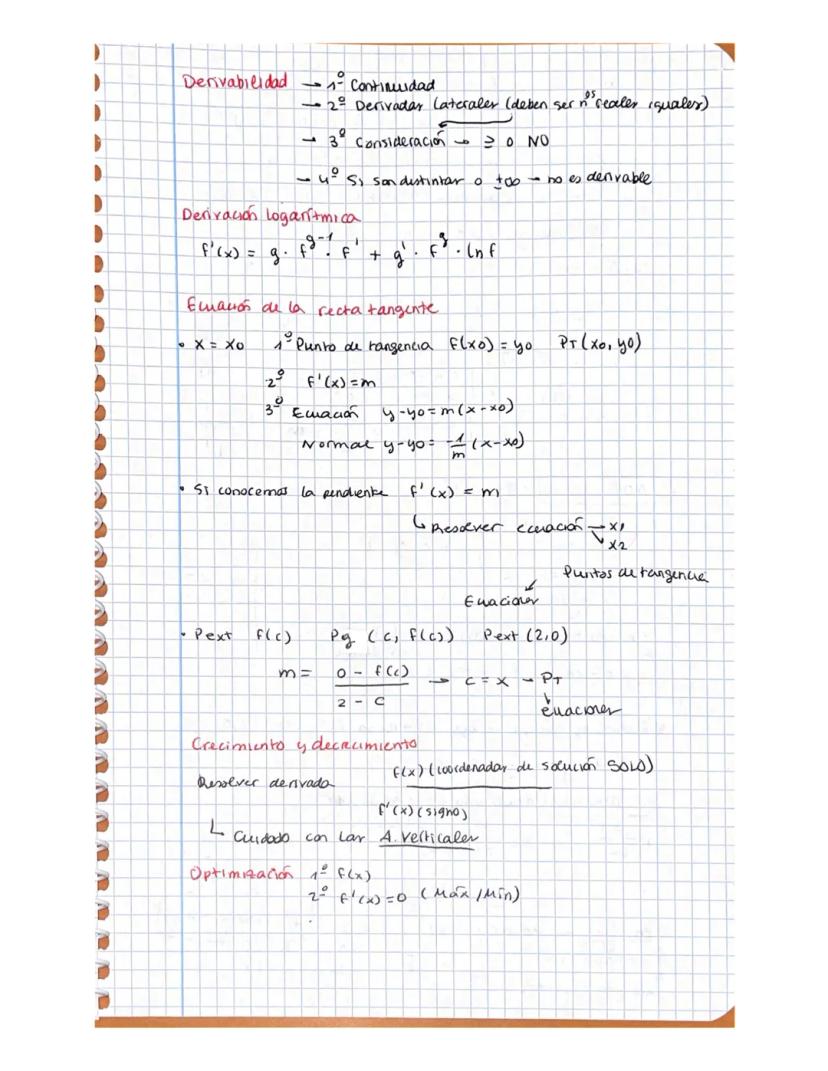 Derivabilidad → 1º Continuidad
→ 2º Derivadas laterales (deben ser nºs reales iguales)
→ 3º Consideración → ≥ 0 NO
→ 4º Si son distintas o ±∞ → no es derivable
Derivación logarítmica
f'(x) = g · f^(g-1) · f' + g' · f^g · ln f
Ecuación de la recta tangente
• x = x0 1º Punto de tangencia f(x0) = y0 PT (x0, y0)
2º f'(x) = m
3º Ecuación y-y0 = m(x-x0)
Normal y-y0 = -1/m (x-x0)
• Si conocemos la pendiente f'(x) = m
↳ Resolver ecuación → x1
↘ x2
Puntos de tangencia
Ecuaciones
• Pext f(c) Pg (c, f(c)) Pext (2,0)
m = (0 - f(c))/(2 - c) → c = x → PT
ecuaciones
Crecimiento y decrecimiento
f(x) (coordenadas de solución SOLO)
Resolver derivada
f'(x) (signo)
↳ Cuidado con las A. Verticales
Optimización 1º f(x)
2º f'(x) = 0 (Máx / Mín)